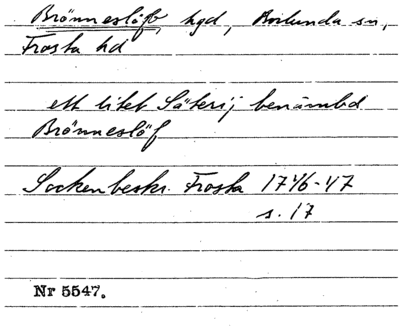 Brönneslöfs, hgd, Borlunda sn,
Frosta hd
ett litet Säterij benämbd
Brönneslöf
Sockenbeskr. Frosta 1746-47
s. 17
Nr 5547.